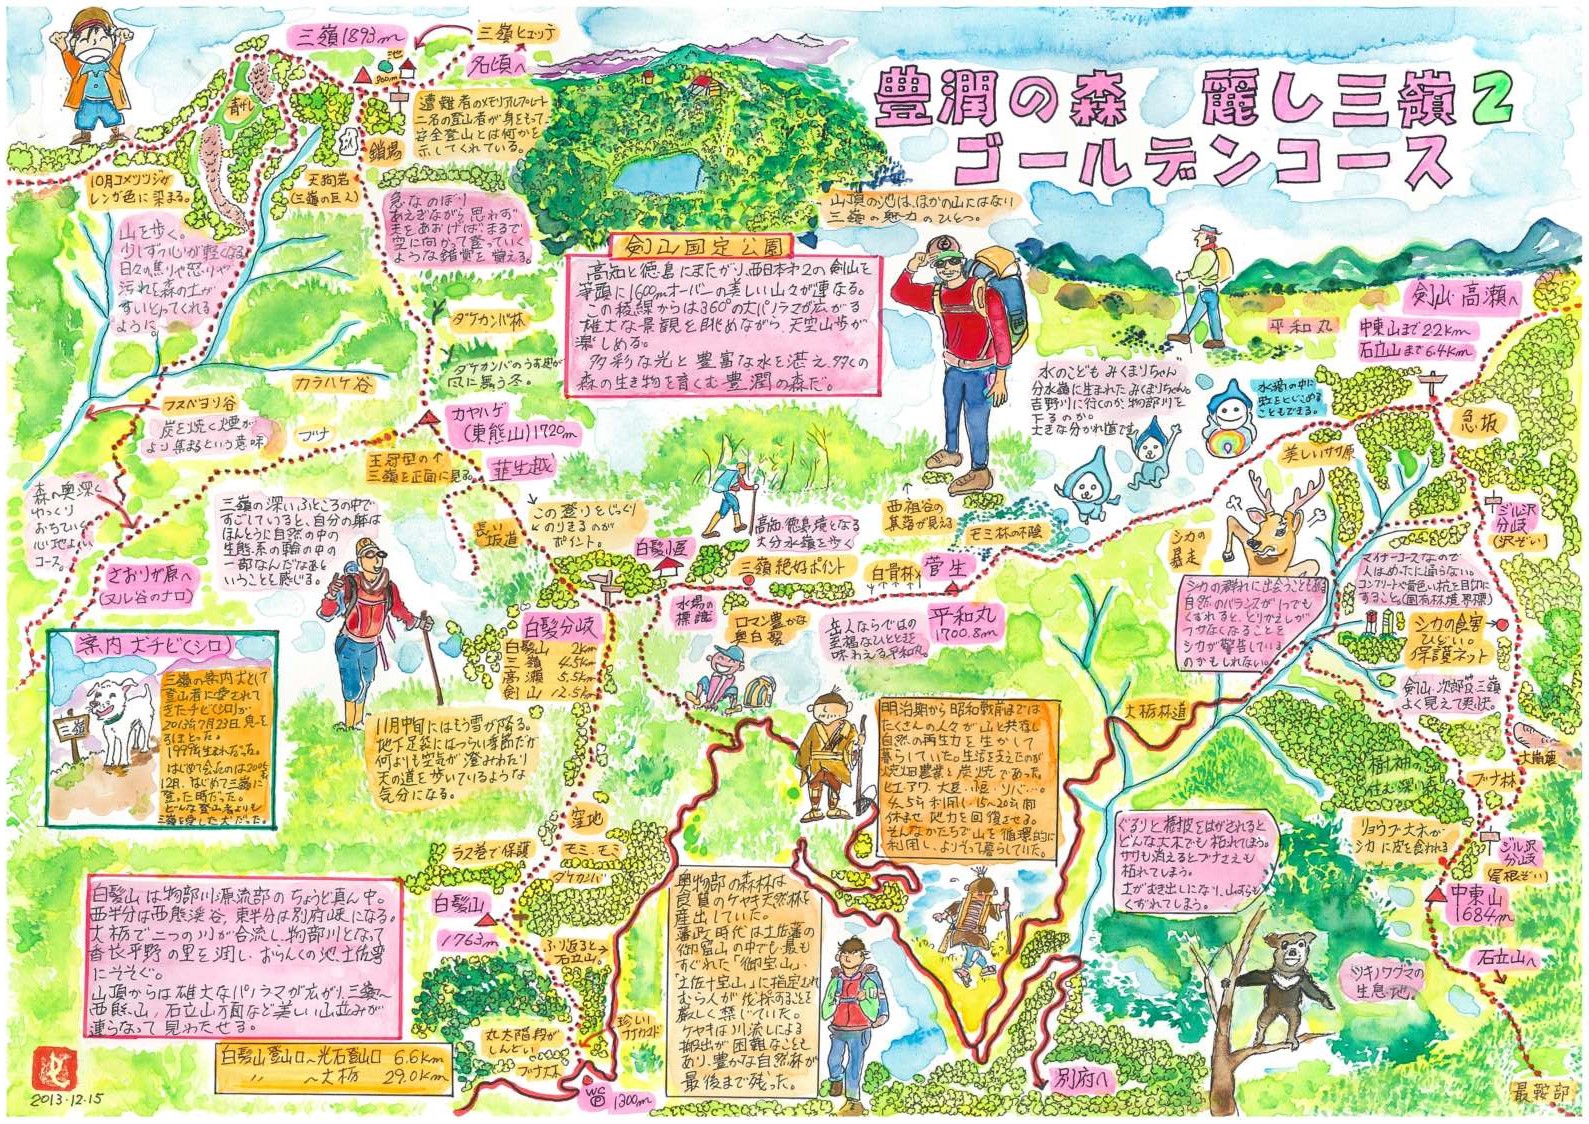 豊潤の森 麗し三嶺2
ゴールデンコース
三嶺1893m
池
三嶺ヒュッテ
名頃へ
遭難者のメモリアルプレート
二名の登山者が身をもって
安全登山とは何かを
示してくれている。
鎖場
青ザレ
10月コメツツジが
レンガ色に染まる。
天狗岩
(三嶺の巨人)
急なのぼり
あえぎながら思わず
天をあおげばまるで
空に向かって登っていく
ような錯覚を覚える。
山を歩く。
少しずつ心が軽くなる
日々の焦りや怒りや
汚れを森の土が
すいとってくれる
ように。
山頂の池は、ほかの山にはない
三嶺の魅力のひとつ。
剣山国定公園
高知と徳島にまたがり、西日本第2の剣山を
筆頭に1600mオーバーの美しい山々が連なる。
この稜線からは360°の大パノラマが広がる
雄大な景観を眺めながら、天空山歩が
楽しめる。
多彩な光と豊富な水を湛え、多くの
森の生き物を育くむ豊潤の森だ。
平和丸
剣山・高瀬へ
中東山まで2.2km
石立山まで6.4km
水のこども みくまりちゃん
分水嶺に生まれたみくまりちゃん。
吉野川に行くのか、物部川を
下るのか。
大きな分かれ道です
水滴の中に
虹をとじこめる
こともできる。
急坂
美しいササ原
ダケカンバ林
ダケカンバのうす皮が
風に舞う冬。
カラハゲ谷
フスベヨリ谷
炭を焼く煙が
より集まるという意味
ブナ
カヤハゲ
(東熊山)1720m
王冠型の
三嶺を正面に見る。
韮生越
森へ奥深く
ゆっくり
おちていく
心地よい
コース。
さおりが原へ
(ヌル谷のナロ)
三嶺の深いふところの中で
すごしていると、自分の躰は
ほんとうに自然の中の
生態系の輪の中の
一部なんだなあと
いうことを感じる。
長い
坂道
この登りをじっくり
のりきるのが
ポイント。
白髪小屋
高知・徳島境となる
大分水嶺を歩く
西祖谷の
集落が見える
モミ林の木陰
三嶺絶好ポイント
白骨林
菅生
水場の
標識
ロマン豊かな
奥白髪
岳人ならではの
至福なひとときを
味わえる平和丸。
平和丸
1700.8m
白髪分岐
白髪山 2km
三嶺 4.5km
高瀬 5.5km
剣山 12.5km
シカの
暴走
シカの群れに出会うこともある
自然のバランスが1つでも
くずれると、とりかえしが
つかなくなることを
シカが警告している
のかもしれない。
ジル沢
分岐
(沢ぞい)
マイナーコースなので
人はめったに通らない。
コンクリートや黄色い杭を目印に
すること(国有林境界標)
シカの食害
ひどい。
保護ネット
剣山、次郎笈、三嶺
よく見えて爽快。
大崩壊
ブナ林
樹神の
住む深い森
大栃林道
案内犬チビ(シロ)
三嶺
三嶺の案内犬として
登山者に愛されて
きたチビ(シロ)が
2013年7月23日息を
ひきとった。
1999年生まれだった。
はじめて会ったのは2005年
12月、はじめて三嶺に
登った時だった。
どんな登山者よりも
三嶺を愛した犬だった。
11月中旬にはもう雪が降る。
地下足袋にはつらい季節だが
何よりも空気が澄みわたり
天の道を歩いているような
気分になる。
明治期から昭和戦前までは
たくさんの人々が山と共存し
自然の再生力を生かして
暮らしていた。生活を支えたのが
焼畑農業と炭焼であった。
ヒエ・アワ、大豆・小豆・ソバ…。
4、5年利用し、15～20年間
休ませ地力を回復させる。
そんなかたちで山を循環的に
利用し、よりそって暮らしていた。
窪地
ラス巻で保護
モミ・モミ
ダケカンバ
白髪山
1763m
ふり返ると
石立山。
白髪山は物部川源流部のちょうど真ん中。
西半分は西熊渓谷、東半分は別府峡になる。
大栃で二つの川が合流し、物部川となって
香長平野の里を潤し、おらんくの池土佐湾
にそそぐ。
山頂からは雄大なパノラマが広がり、三嶺～
西熊山、石立山方面など美しい山並みが
連なって見わたせる。
白髪山登山口～光石登山口 6.6km
〃 ～大栃 29.0km
2013.12.15
丸太階段が
しんどい
ブナ大木
珍しい
WC
1300m
奥物部の森林は
良質のケヤキ天然林を
産出していた。
藩政時代は土佐藩の
御留山の中でも最も
すぐれた「御宝山」、
「土佐十宝山」に指定され
むら人が伐採することを
厳しく禁じていた。
ケヤキは川流による
搬出が困難なことも
あり、豊かな自然林が
最後まで残った。
別府へ
ぐるりと樹皮をはがされると
どんな大木でも枯れてしまう。
ササも消えるとブナさえも
枯れてしまう。
土がむき出しになり、山すらも
くずれてしまう。
リョウブ大木が
シカに皮を食われる
ジル沢
分岐
尾根ぞい
中東山
1684m
石立山へ
ツキノワグマの
生息地。
最鞍部